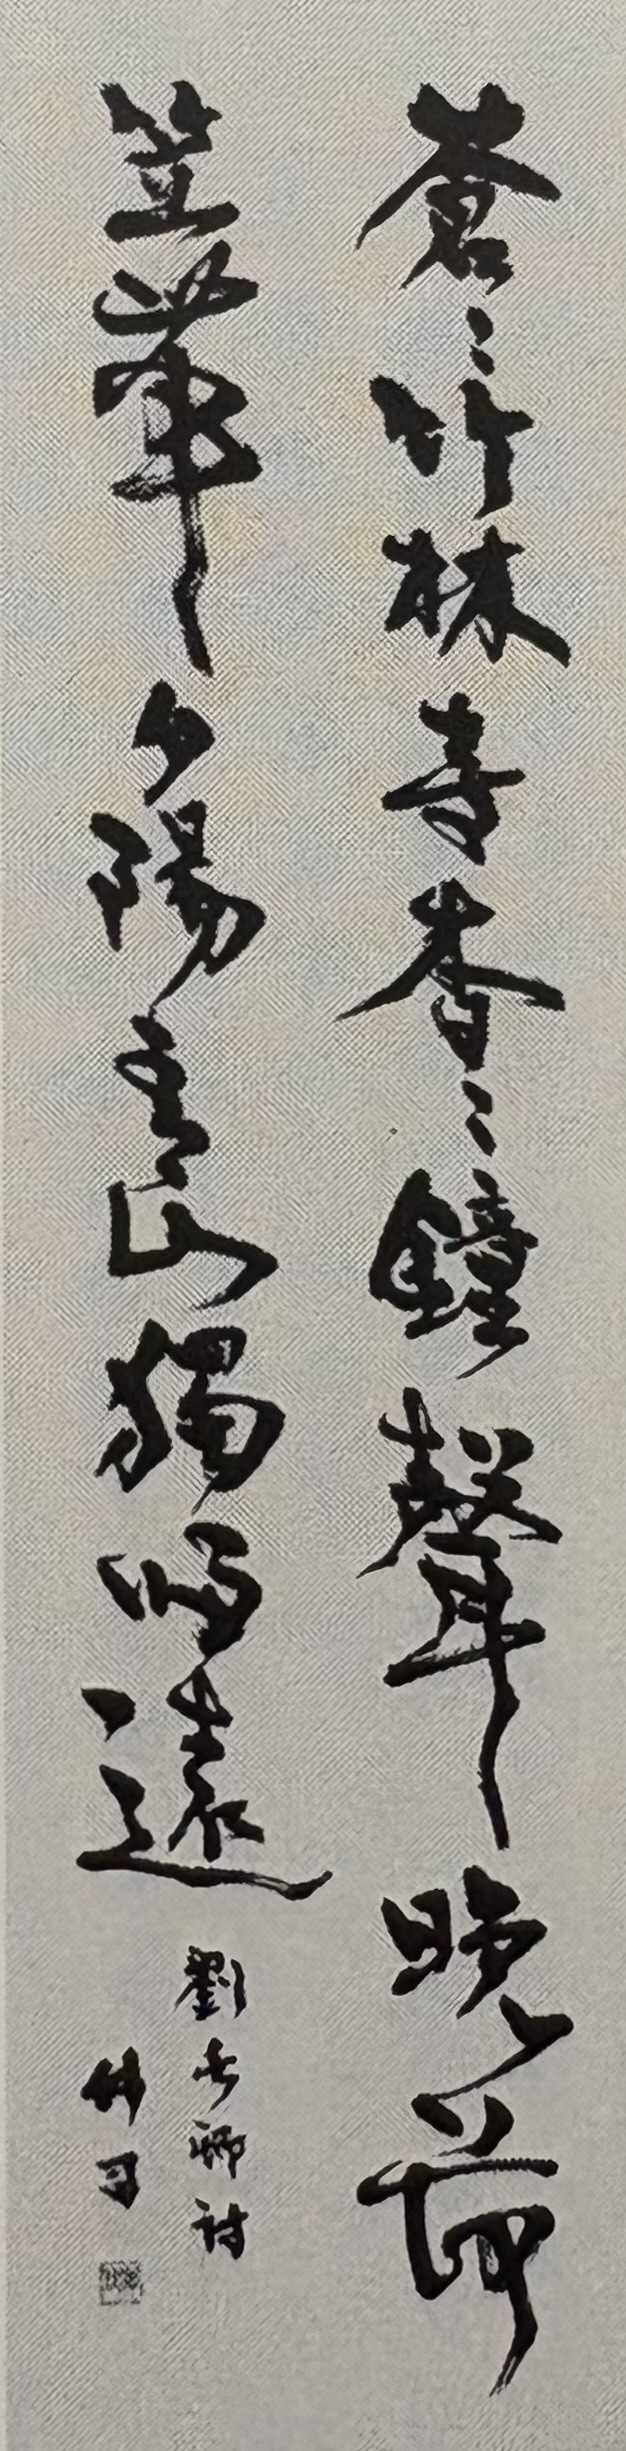 蒼〻竹林寺杳〻鐘聲晚荷
笠帶夕陽青山獨歸遠
劉長卿詩